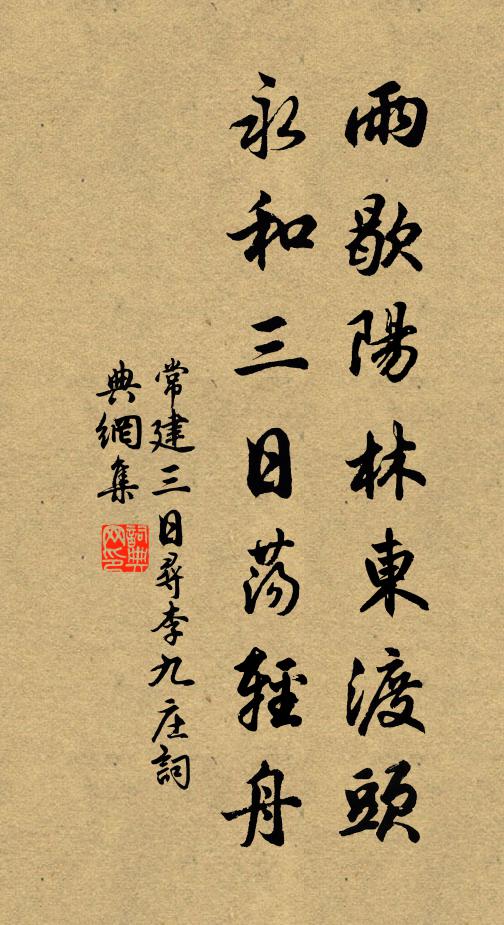 雨歇陽林東渡頭
永和三日荡輕舟
常建三日尋李九庄詞
典網集
詞典
网印